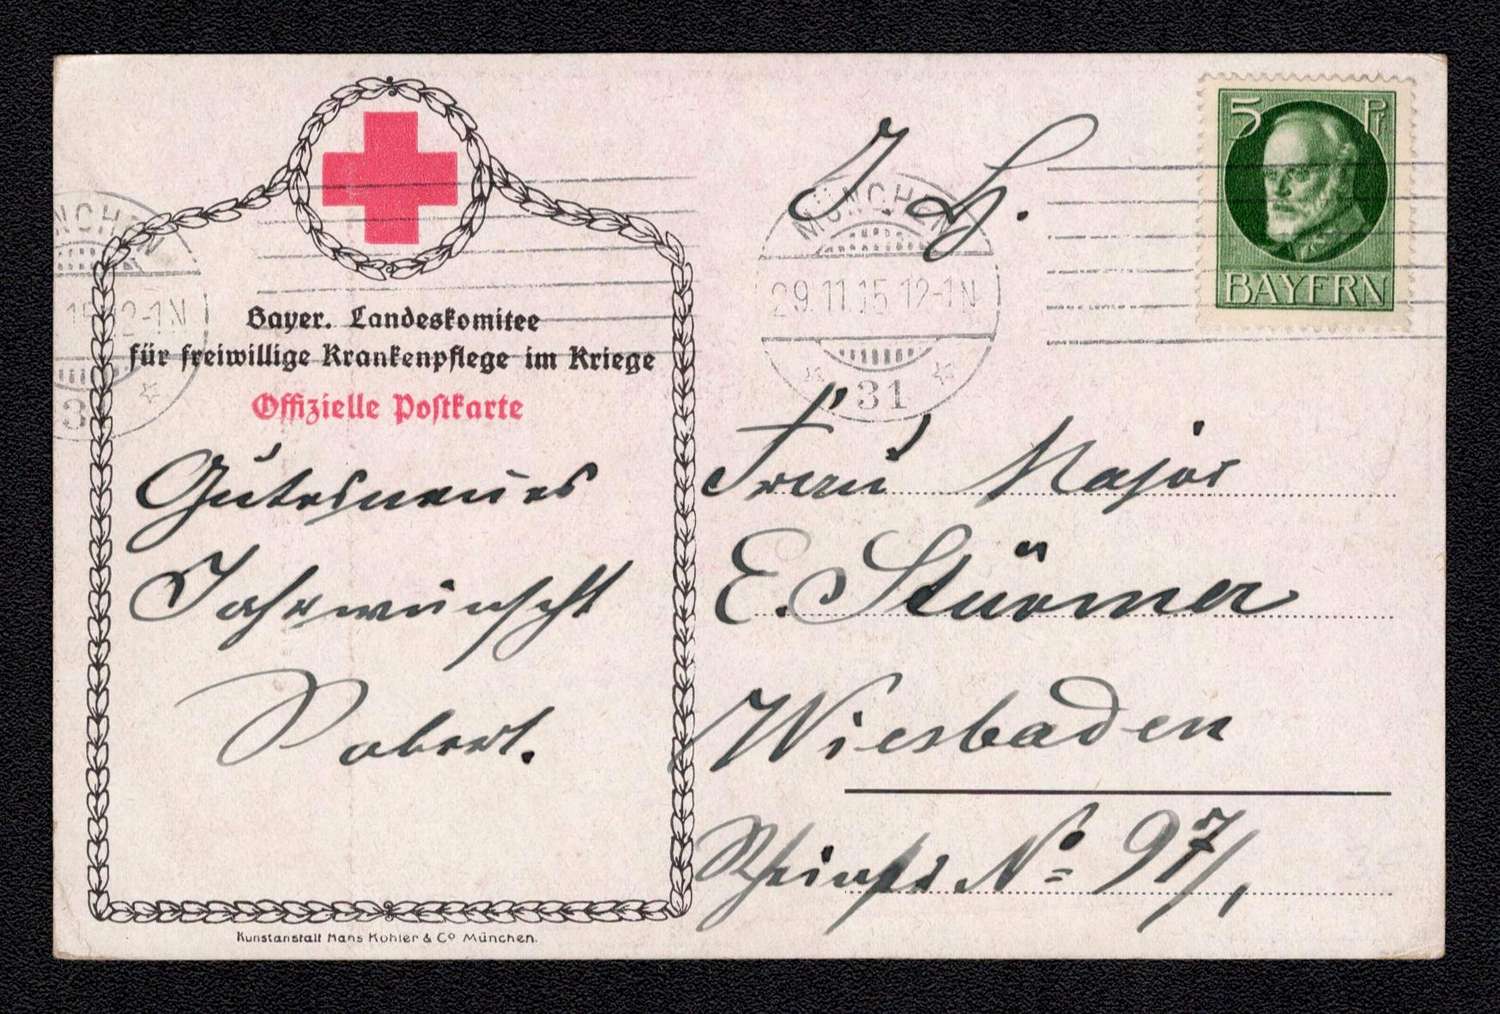 Bayer. Landeskomitee
für freiwillige Krankenpflege im Kriege
Offizielle Postkarte
Gutesneues
Jahr wünscht
Robert.
Kunstanstalt Hans Kohler & Co München.
MÜNCHEN
29.11.15 12-1N
31
5 Pf
BAYERN
Frau Major
E. Stürmer
Wiesbaden
Rheinstr No 97/1